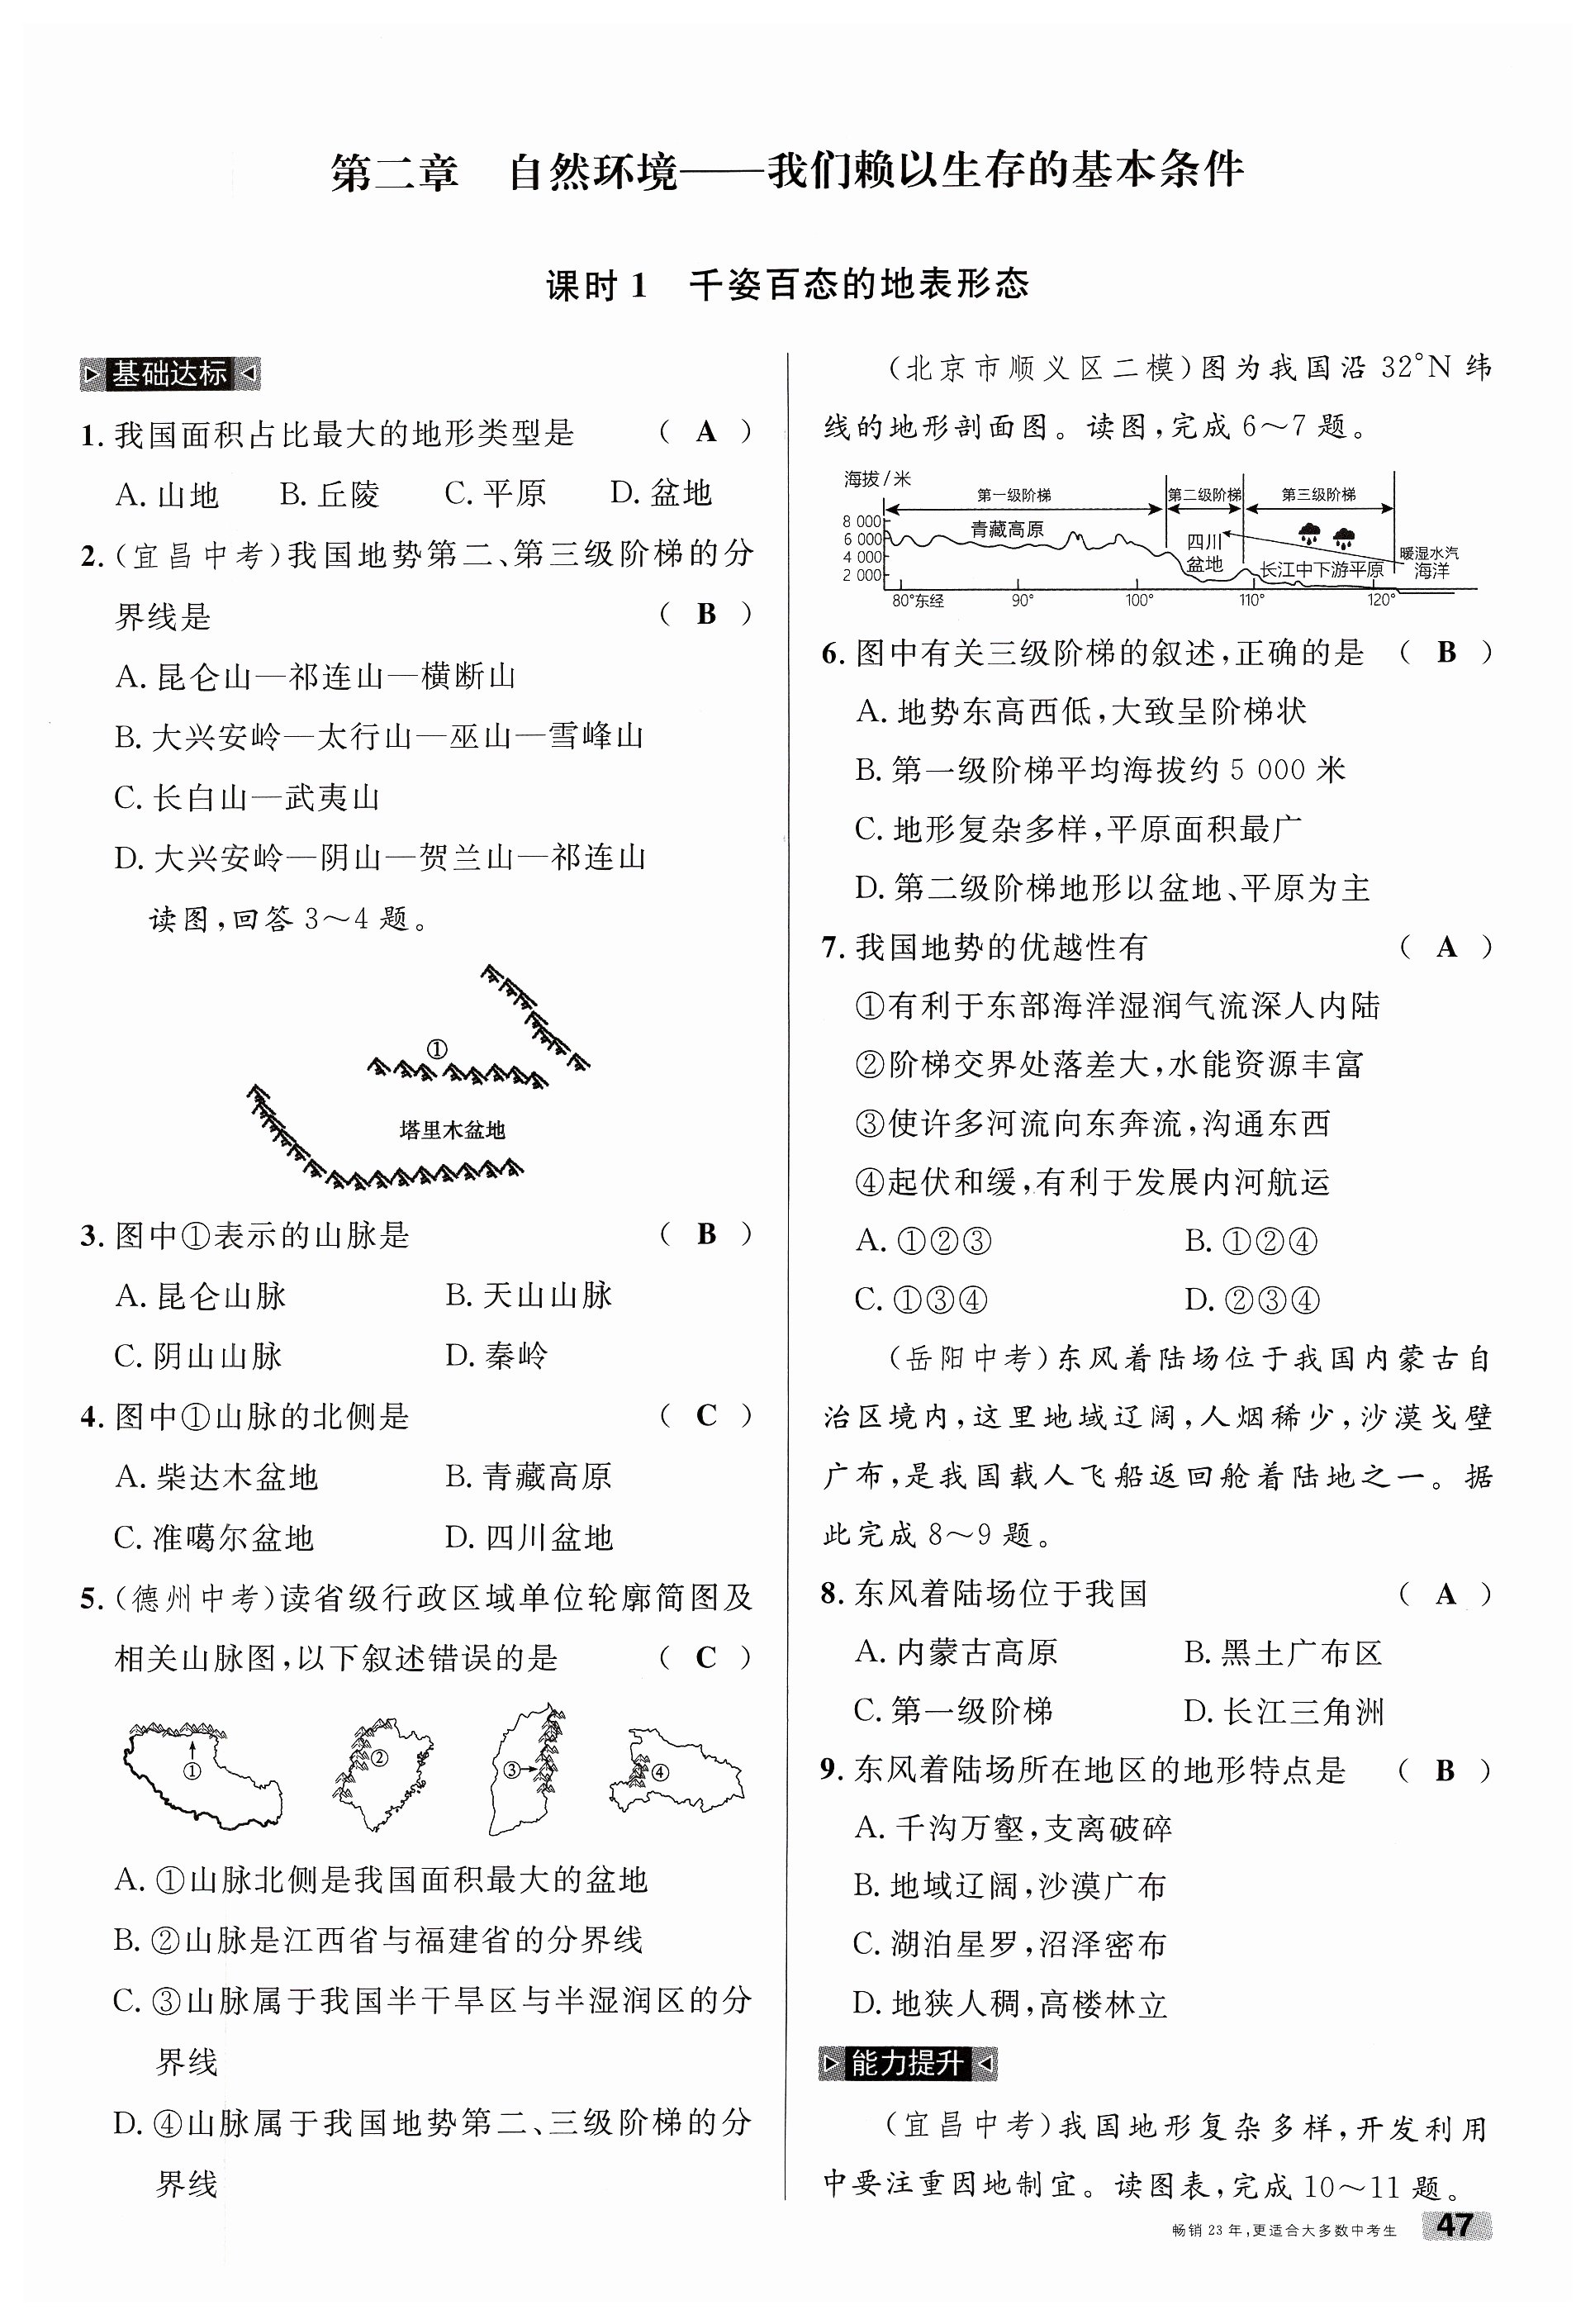 第二章　自然环境——我们赖以生存的基本条件
课时1　千姿百态的地表形态
基础达标
1. 我国面积占比最大的地形类型是　（ A ）
A. 山地　B. 丘陵　C. 平原　D. 盆地
2. (宜昌中考)我国地势第二、第三级阶梯的分
界线是　（ B ）
A. 昆仑山—祁连山—横断山
B. 大兴安岭—太行山—巫山—雪峰山
C. 长白山—武夷山
D. 大兴安岭—阴山—贺兰山—祁连山
读图,回答3～4题。
①
塔里木盆地
3. 图中①表示的山脉是　（ B ）
A. 昆仑山脉　B. 天山山脉
C. 阴山山脉　D. 秦岭
4. 图中①山脉的北侧是　（ C ）
A. 柴达木盆地　B. 青藏高原
C. 准噶尔盆地　D. 四川盆地
5. (德州中考)读省级行政区域单位轮廓简图及
相关山脉图,以下叙述错误的是　（ C ）
①　②　③　④
A. ①山脉北侧是我国面积最大的盆地
B. ②山脉是江西省与福建省的分界线
C. ③山脉属于我国半干旱区与半湿润区的分
界线
D. ④山脉属于我国地势第二、三级阶梯的分
界线
(北京市顺义区二模)图为我国沿32°N纬
线的地形剖面图。读图,完成6～7题。
海拔/米
第一级阶梯　第二级阶梯　第三级阶梯
8 000
6 000
4 000
2 000
青藏高原
四川
盆地
长江中下游平原
暖湿水汽
海洋
80°东经　90°　100°　110°　120°
6. 图中有关三级阶梯的叙述,正确的是　（ B ）
A. 地势东高西低,大致呈阶梯状
B. 第一级阶梯平均海拔约5 000米
C. 地形复杂多样,平原面积最广
D. 第二级阶梯地形以盆地、平原为主
7. 我国地势的优越性有　（ A ）
①有利于东部海洋湿润气流深入内陆
②阶梯交界处落差大,水能资源丰富
③使许多河流向东奔流,沟通东西
④起伏和缓,有利于发展内河航运
A. ①②③　B. ①②④
C. ①③④　D. ②③④
(岳阳中考)东风着陆场位于我国内蒙古自
治区境内,这里地域辽阔,人烟稀少,沙漠戈壁
广布,是我国载人飞船返回舱着陆地之一。据
此完成8～9题。
8. 东风着陆场位于我国　（ A ）
A. 内蒙古高原　B. 黑土广布区
C. 第一级阶梯　D. 长江三角洲
9. 东风着陆场所在地区的地形特点是　（ B ）
A. 千沟万壑,支离破碎
B. 地域辽阔,沙漠广布
C. 湖泊星罗,沼泽密布
D. 地狭人稠,高楼林立
能力提升
(宜昌中考)我国地形复杂多样,开发利用
中要注重因地制宜。读图表,完成10～11题。
畅销23年,更适合大多数中考生　47